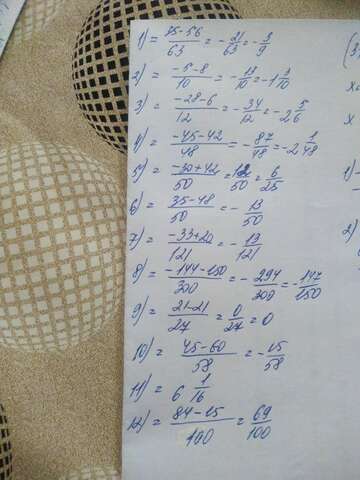 1) = 35-56/63 = -21/63 = -3/9
2) = -5-8/10 = -13/10 = -1 3/10
3) = -28-6/12 = -34/12 = -2 5/6
4) = -45-42/48 = -87/48 = -2 1/48
5) = -30+42/50 = 12/50 = 6/25
6) = 35-48/50 = -13/50
7) = -33+20/121 = -13/121
8) = -144-150/300 = -294/300 = -147/150
9) = 21-21/27 = 0/27 = 0
10) = 45-60/58 = -15/58
11) = 6 1/16
12) = 84-15/100 = 69/100
x
1)-
2)